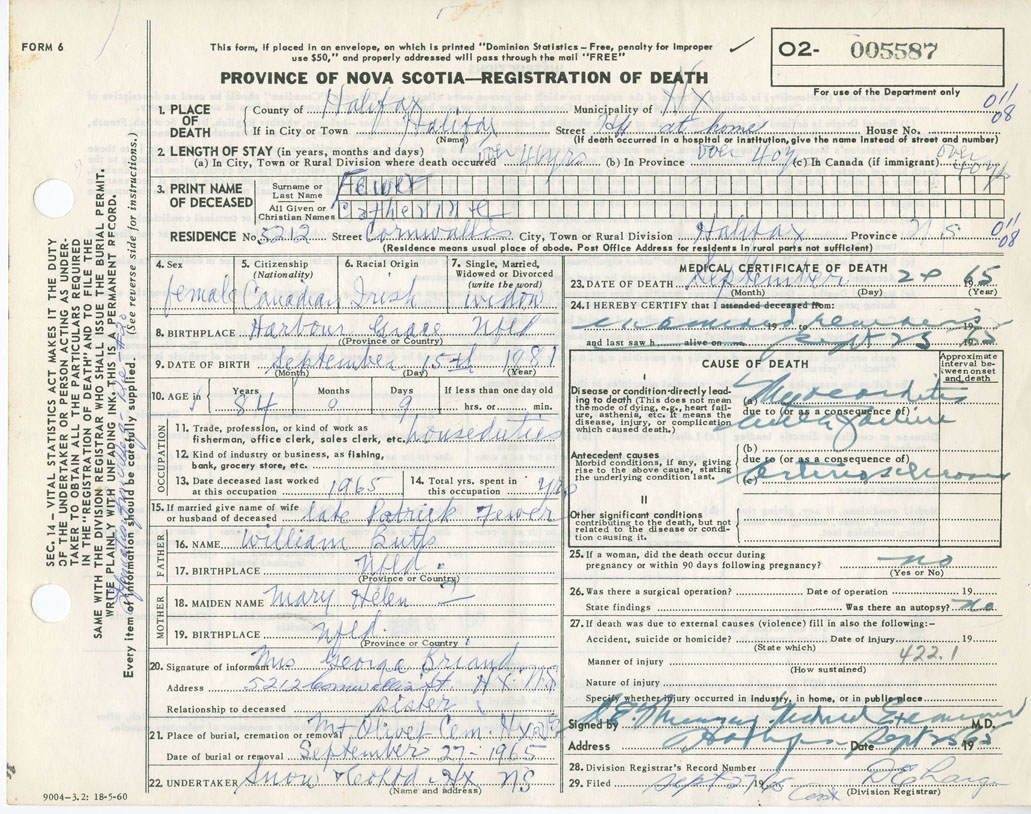 FORM 6
This form, if placed in an envelope, on which is printed "Dominion Statistics – Free, penalty for improper
use $50," and properly addressed will pass through the mail "FREE"
PROVINCE OF NOVA SCOTIA—REGISTRATION OF DEATH
O2- 005587
For use of the Department only
011
08
1. PLACE OF DEATH
County of Halifax Municipality of Hx
If in City or Town Halifax Street at home House No.
(Name) (If death occurred in a hospital or institution, give the name instead of street and number)
2. LENGTH OF STAY (in years, months and days)
(a) In City, Town or Rural Division where death occurred over 40 yrs (b) In Province over 40 y (c) In Canada (if immigrant) over 40 y
3. PRINT NAME OF DECEASED
Surname or Last Name Fewer
All Given or Christian Names Catherine
RESIDENCE No. 5212 Street Cornwallis City, Town or Rural Division Halifax Province N S
011
08
(Residence means usual place of abode. Post Office Address for residents in rural parts not sufficient)
4. Sex female
5. Citizenship (Nationality) Canadian
6. Racial Origin Irish
7. Single, Married, Widowed or Divorced (write the word) widow
8. BIRTHPLACE Harbour Grace Nfld
(Province or Country)
9. DATE OF BIRTH September 15th 1981
(Month) (Day) (Year)
10. AGE in Years 84 Months 0 Days 9 If less than one day old hrs. or min.
OCCUPATION
11. Trade, profession, or kind of work as fisherman, office clerk, sales clerk, etc. houseduties
12. Kind of industry or business, as fishing, bank, grocery store, etc.
13. Date deceased last worked at this occupation 1965
14. Total yrs. spent in this occupation yrs
15. If married give name of wife or husband of deceased late Patrick Fewer
FATHER
16. NAME William Butts
17. BIRTHPLACE Nfld.
(Province or Country)
MOTHER
18. MAIDEN NAME Mary Helen —
19. BIRTHPLACE Nfld.
(Province or Country)
20. Signature of informant Mrs George Briand
Address 5212 Cornwallis St Hx. NS
Relationship to deceased sister
21. Place of burial, cremation or removal Mt Olivet Cem. Hx NS
Date of burial or removal September 27-1965
22. UNDERTAKER Snow & Co Ltd. Hx NS
(Name and address)
MEDICAL CERTIFICATE OF DEATH
23. DATE OF DEATH September 24 1965
(Month) (Day) (Year)
24. I HEREBY CERTIFY that I attended deceased from:
examined remains
19 to 19
and last saw h alive on Sept 25 1965
CAUSE OF DEATH
Approximate interval between onset and death
I
Disease or condition directly leading to death (This does not mean the mode of dying, e.g., heart failure, asthenia, etc. It means the disease, injury, or complication which caused death.)
(a) Myocarditis
due to (or as a consequence of)
with failure
Antecedent causes
Morbid conditions, if any, giving rise to the above cause, stating the underlying condition last.
(b)
due to (or as a consequence of)
(c) Arteriosclerosis
II
Other significant conditions
contributing to the death, but not related to the disease or condition causing it.
25. If a woman, did the death occur during pregnancy or within 90 days following pregnancy? no
(Yes or No)
26. Was there a surgical operation? Date of operation 19
State findings Was there an autopsy? no
27. If death was due to external causes (violence) fill in also the following:–
Accident, suicide or homicide? Date of injury 19
(State which)
422.1
Manner of injury
(How sustained)
Nature of injury
Specify whether injury occurred in industry, in home, or in public place
Signed by Medical Examiner M.D.
Address Halifax Date Sept 25 1965
28. Division Registrar's Record Number
29. Filed Sept 27 1965
(Division Registrar)
SEC. 14 – VITAL STATISTICS ACT MAKES IT THE DUTY
OF THE UNDERTAKER OR PERSON ACTING AS UNDER-
TAKER TO OBTAIN ALL THE PARTICULARS REQUIRED
IN THE "REGISTRATION OF DEATH" AND TO FILE THE
SAME WITH THE DIVISION REGISTRAR WHO SHALL ISSUE THE BURIAL PERMIT.
WRITE PLAINLY WITH UNFADING INK. THIS IS A PERMANENT RECORD.
Every item of information should be carefully supplied. (See reverse side for instructions.)
9004-3.2: 18-5-60